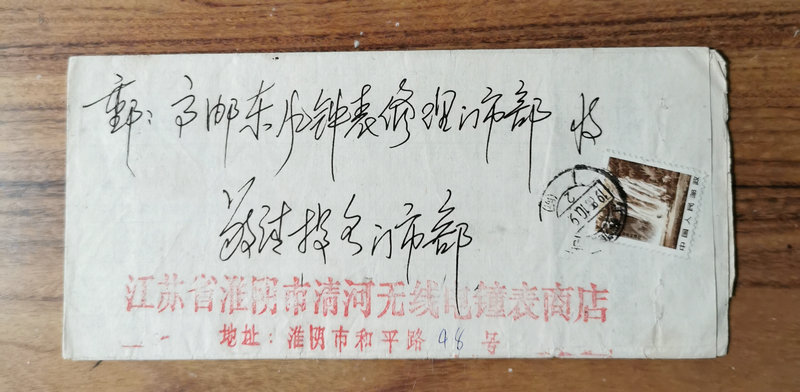 郵：高邮东片钟表修理门市部 收
敬请投各门市部
江苏省淮阴市清河无线电钟表商店
地址：淮阴市和平路48号
中国人民邮政